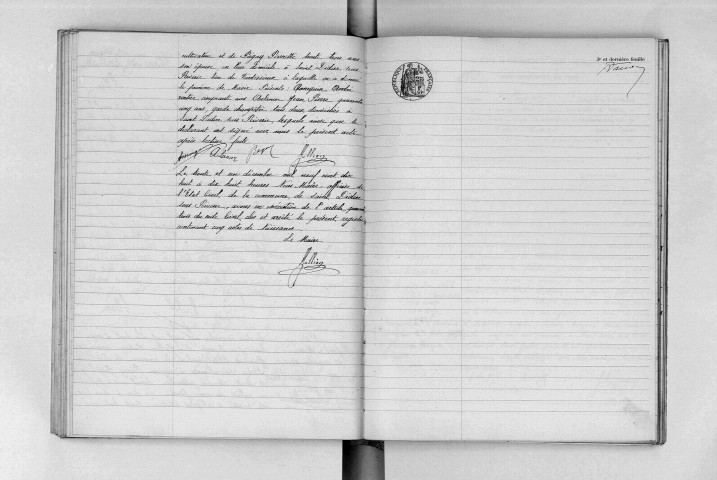 cultivateur et de Pierrette trente trois ans
son épouse en leur domicile à Saint Didier sous
Riverie lieu de à laquelle on a donné
le prénom de Marie André
rentier cinquante ans Jean Pierre quarante
cinq ans, garde champêtre tous deux domiciliés à
Saint Didier sous Riverie, lesquels ainsi que le
déclarant ont signé avec nous le présent acte
après lecture faite
Le trente et un décembre mil neuf cent dix
huit à dix huit heures Nous Maire officier de
l'Etat Civil de la commune de Saint Didier
sous Riverie, avons en exécution de l'article quarante
trois du code Civil, clos et arrêté le présent registre
contenant cinq actes de naissance
Le Maire
3e et dernière feuille